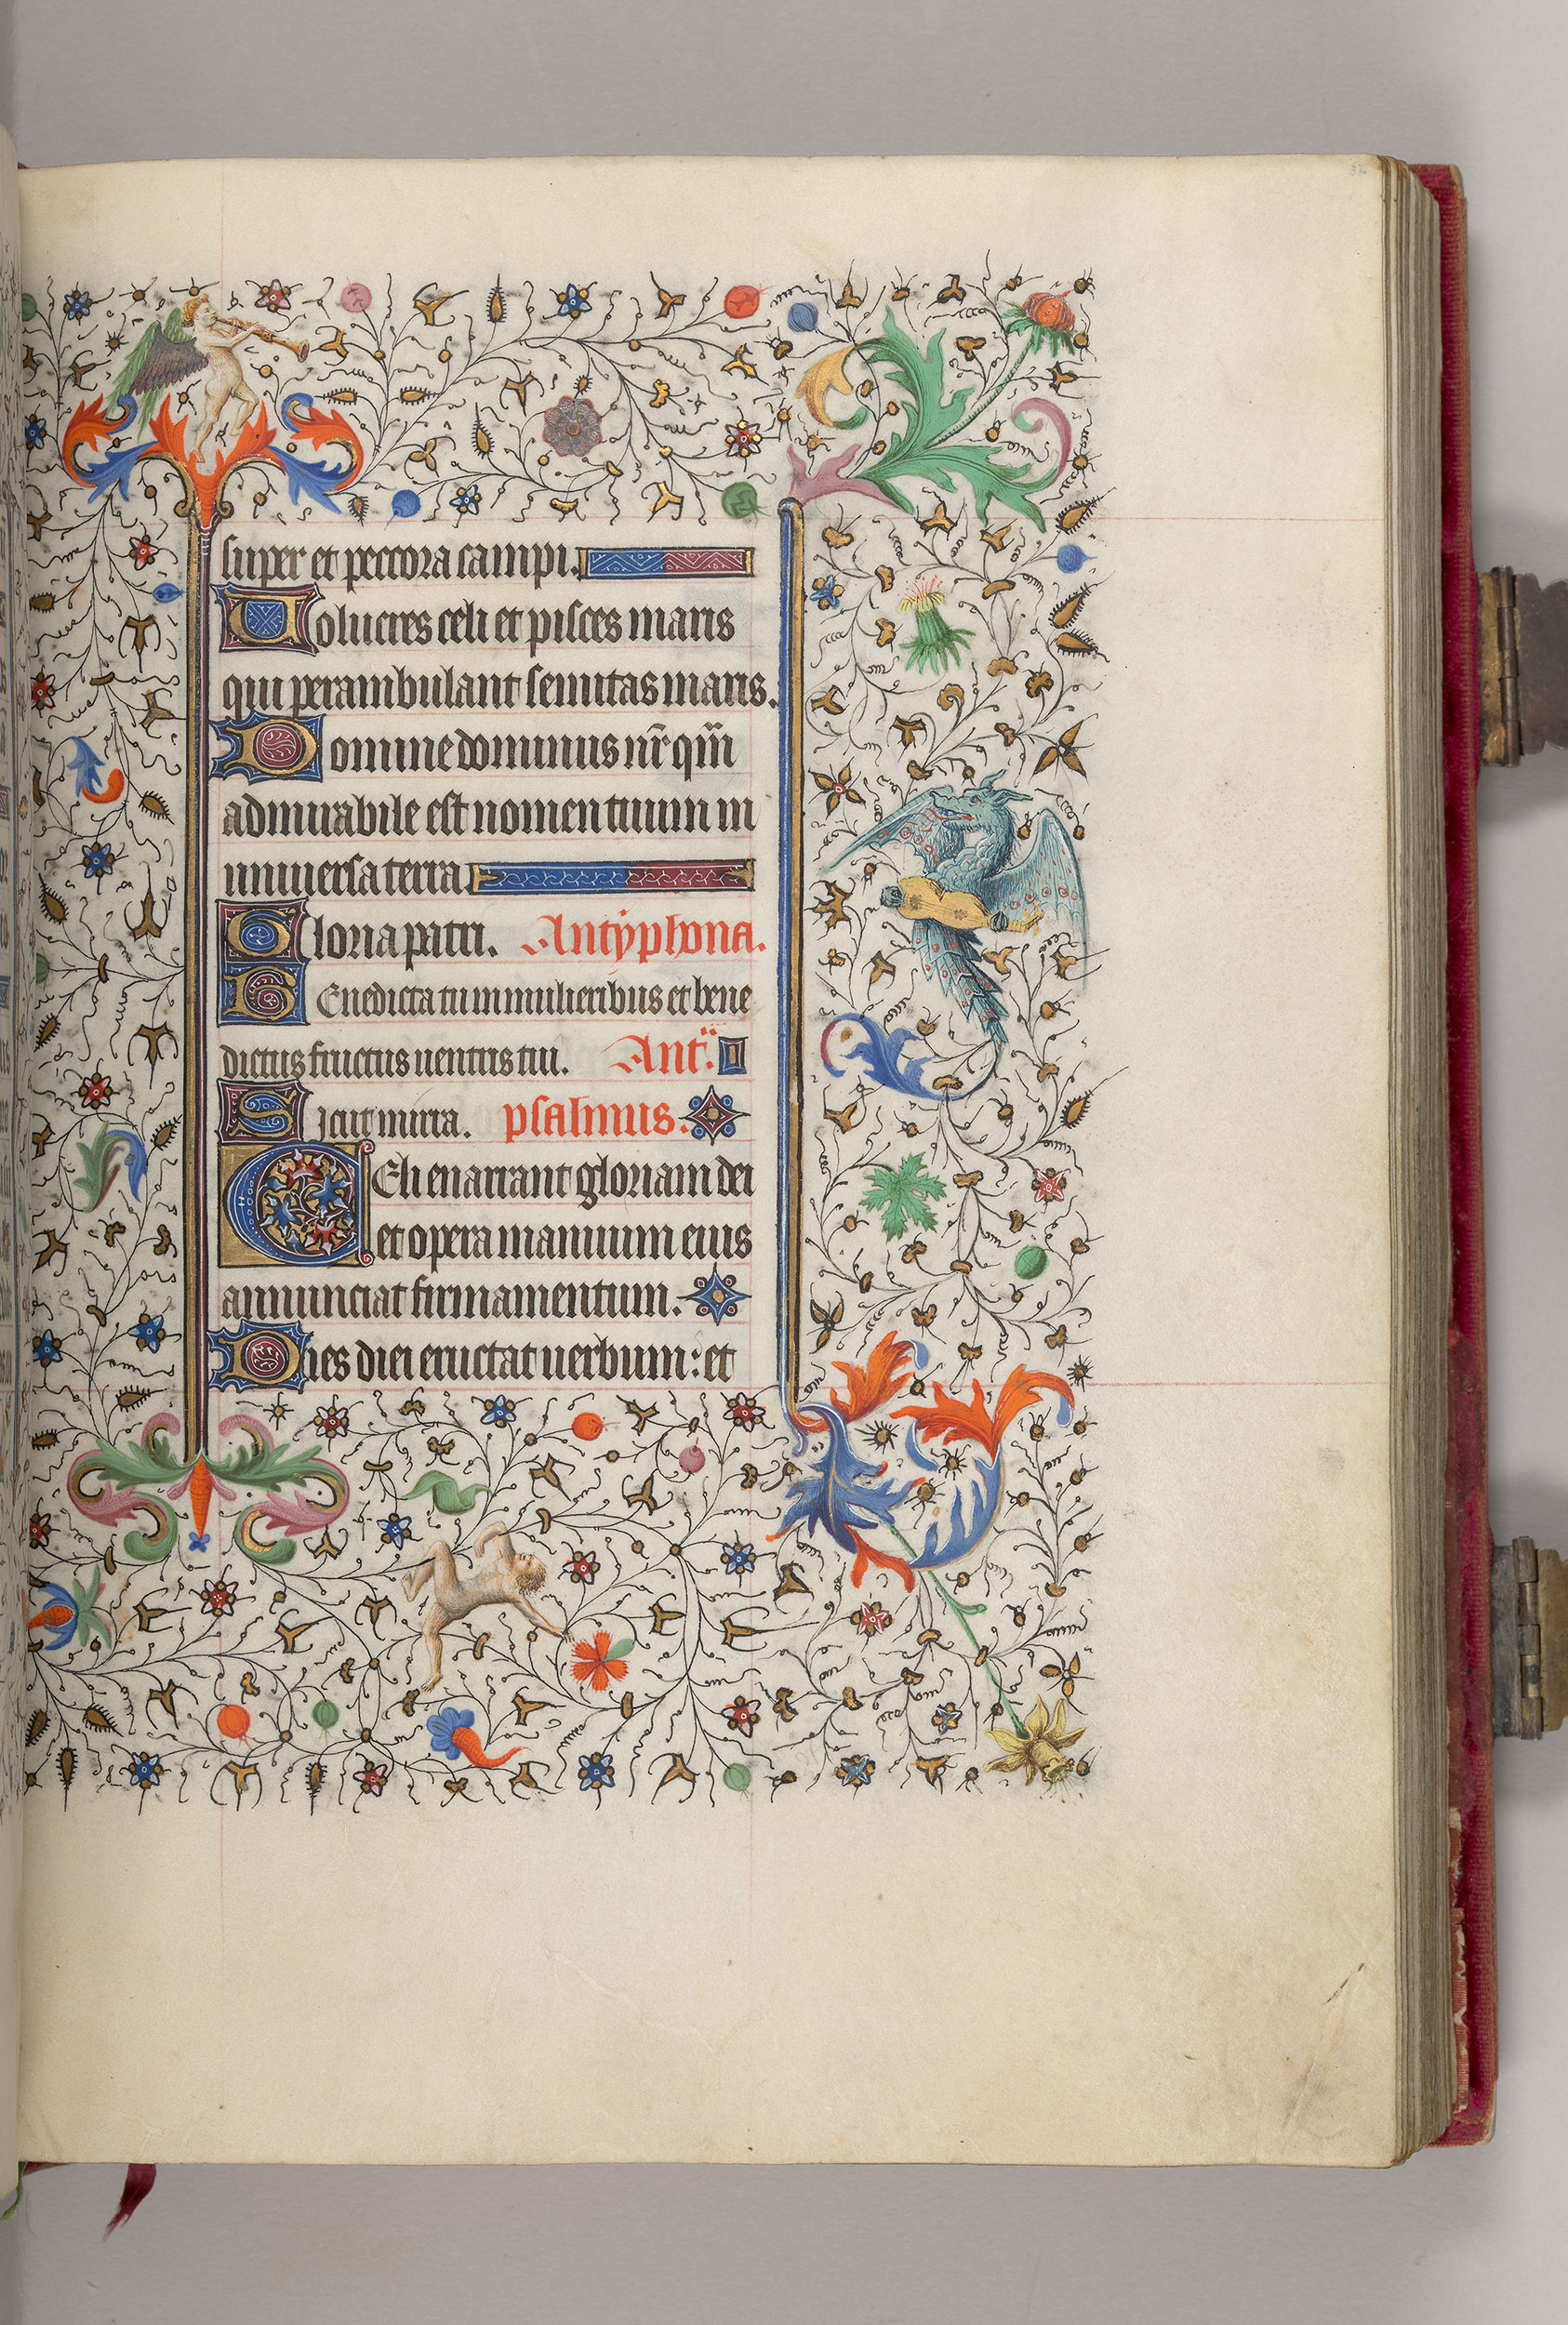 super et peccora campi.
Uolucres celi et pisces maris
qui perambulant semitas maris.
Domine dominus nr̄ qm̄
admirabile est nomen tuum in
uniuersa terra
Gloria patri. Antyphona.
Benedicta tu in mulieribus et bene
dictus fructus uentris tui. Ant.
Sicut mirra. psalmus.
Celi enarrant gloriam dei
et opera manuum eius
annunciat firmamentum.
Dies diei eructat uerbum: et